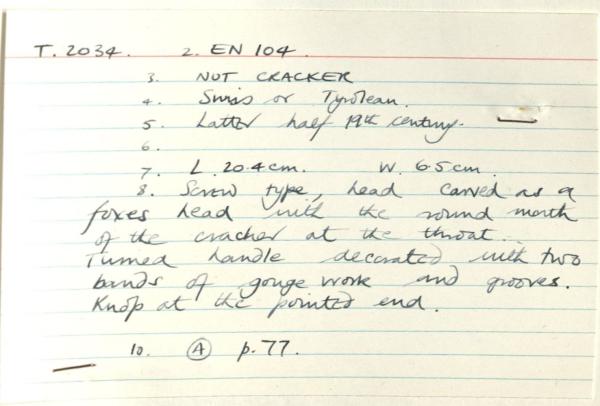 T. 2034. 2. EN 104.
3. NUT CRACKER
4. Swiss or Tyrolean.
5. Latter half 19th century.
6.
7. L. 20.4cm. W. 6.5cm.
8. Screw type, head carved as a
foxes head with the round mouth
of the cracker at the throat.
Turned handle decorated with two
bands of gouge work and grooves.
Knop at the pointed end.
10. A p.77.